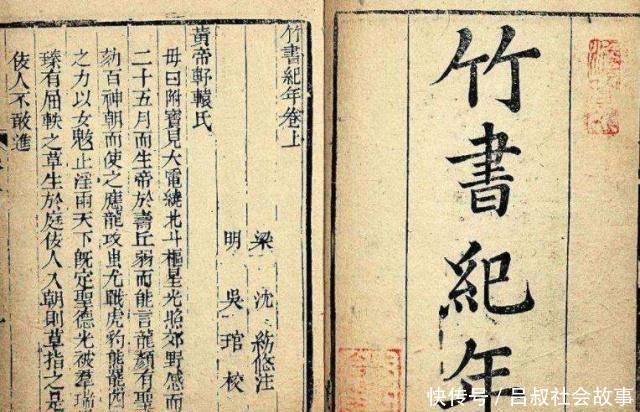 竹書紀年
竹書紀年卷上
梁 沈約附注
明 吳琯校
黃帝軒轅氏
母曰附寶見大電繞北斗樞星光照郊野感而
二十五月而生帝於壽丘弱而能言龍顏有聖
劾百神朝而使之應龍攻蚩尤戰虎豹熊羆四
之力以女魃止淫雨天下既定聖德光被羣瑞
臻有屈軼之草生於庭佞人入朝則草指之是
佞人不敢進
快传号 / 吕叔社会故事